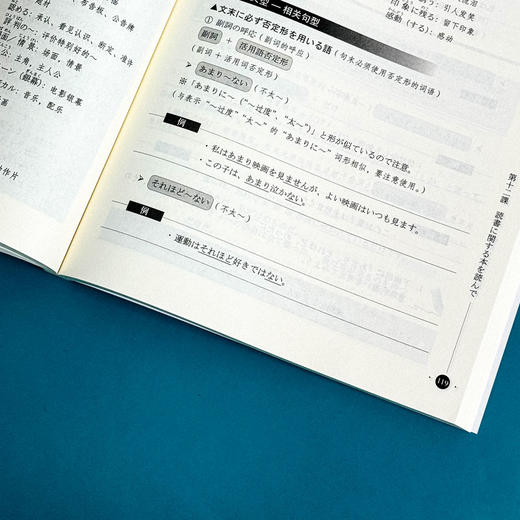 素材
认める：承认、看见认识、断定、准许
主人公：主角，主人公
场面，情景
音乐，配乐
引人发笑
印象に残る：留下印象
感動（する）：感动
句型 — 相关句型
▲文末に必ず否定形を用いる語（句末必须使用否定形的词语）
① 副詞の呼応（副词的呼应）
副詞 + 活用語否定形
（副词 + 活用词否定形）
➢ あまり～ない（不太～）
※「あまりに～（“～过度”、“太～”）」と形が似ているので注意。
（与表示“～过度”“太～”的“あまりに～”词形相似，要注意使用。）
例
・私はあまり映画を見ませんが、よい映画はいつも見ます。
・この子は、あまり泣かない。
➢ それほど～ない（不太～）
例
・運動はそれほど好きではない。
第十二課 読書に関する本を読んで
119